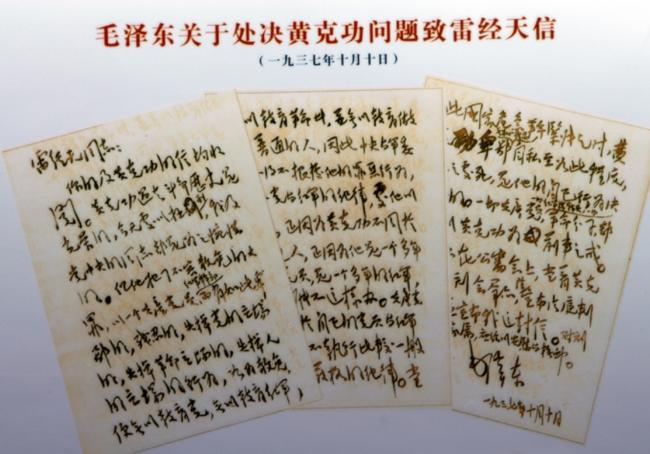 毛泽东关于处决黄克功问题致雷经天信
（一九三七年十月十日）
雷经天同志：
你的及黄克功的信均收
阅。黄克功过去斗争历史是
光荣的，今天处以极刑，我及
党中央的同志都是为之惋惜
的。但他犯了不容赦免的大
罪，以一个共产党员红军干部而有如此卑鄙
的，残忍的，失掉党的立场
的，失掉革命立场的，失掉人
的立场的行为，如为赦免，
便无以教育党，无以教育红军，
以教育革命者，并无以教育做
普通的人。因此中央与军委
不得不根据他的罪恶行为，
党与红军的纪律，处他以
正因为黄克功不同于
人，正因为他是一个多年
党员，是一个多年的红军，
不能不这样办。共产党
对于自己的党员与红军
不能不执行比较一般
严格的纪律。当
此国家危急革命紧张之时，黄
卑鄙无耻残忍自私至如此程度，
之处死，是他自己的行为决
的。一切共产党员，一切
黄克功为前车之戒。
在公审会上，当着黄克
到会群众，除宣布法庭判
宣布我这封信。对刘
家属，应给以安慰与抚恤。
毛泽东
一九三七年十月十日